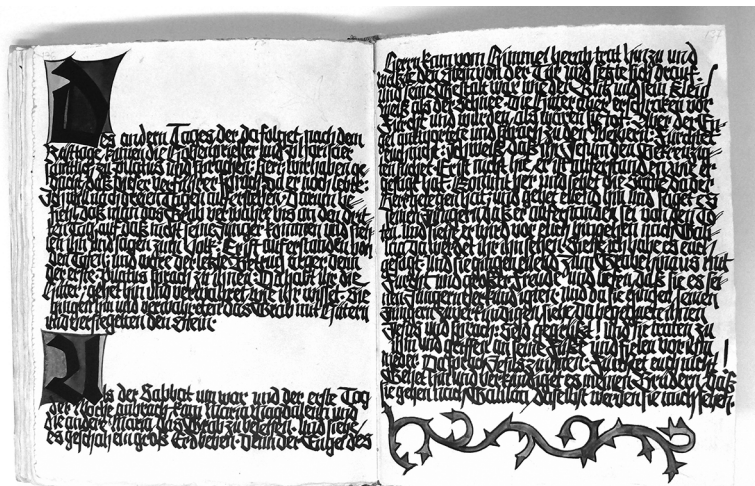 Des andern Tages der da folget nach dem
Rüsttage kamen die Hohenpriester und Pharisäer
sämtlich zu Pilatus und sprachen: Herr wir haben ge-
dacht, daß dieser Verführer sprach, da er noch lebte:
Ich will nach dreien Tagen auferstehen. Darum be-
fiehl, daß man das Grab verwahre bis an den drit-
ten Tag, auf daß nicht seine Jünger kommen und steh-
len ihn und sagen zum Volk: Er ist auferstanden von
den Toten; und werde der letzte Betrug ärger denn
der erste. Pilatus sprach zu ihnen: Da habt ihr die
Hüter; gehet hin und verwahret wie ihr wisset. Sie
gingen hin und verwahreten das Grab mit Hütern
und versiegelten den Stein.
Als der Sabbat um war und der erste Tag
der Woche anbrach kam Maria Magdalena und
die andere Maria das Grab zu besehen. Und siehe,
es geschah ein groß Erdbeben. Denn der Engel des
Herrn kam vom Himmel herab, trat hinzu und
wälzte den Stein von der Tür und setzte sich drauf.
Und seine Gestalt war wie der Blitz und sein Kleid
weiß als der Schnee. Die Hüter aber erschraken vor
Furcht und wurden als wären sie tot. Aber der En-
gel antwortete und sprach zu den Weibern: Fürchtet
euch nicht! Ich weiß, daß ihr Jesum den Gekreuzig-
ten suchet. Er ist nicht hie, er ist auferstanden wie er
gesagt hat. Kommt her und sehet die Stätte da der
Herr gelegen hat; und gehet eilend hin und saget es
seinen Jüngern daß er auferstanden sei von den To-
ten. Und siehe er wird vor euch hingehen nach Gali-
läa; da werdet ihr ihn sehen. Siehe ich habe es euch
gesagt. Und sie gingen eilend zum Grabe hinaus mit
Furcht und großer Freude und liefen daß sie es sei-
nen Jüngern verkündigten. Und da sie gingen seinen
Jüngern zu verkündigen siehe da begegnete ihnen
Jesus und sprach: Seid gegrüßt! Und sie traten zu
ihm und griffen an seine Füße und fielen vor ihm
nieder. Da sprach Jesus zu ihnen: Fürchtet euch nicht!
Gehet hin und verkündiget es meinen Brüdern, daß
sie gehen nach Galiläa; daselbst werden sie mich sehen.